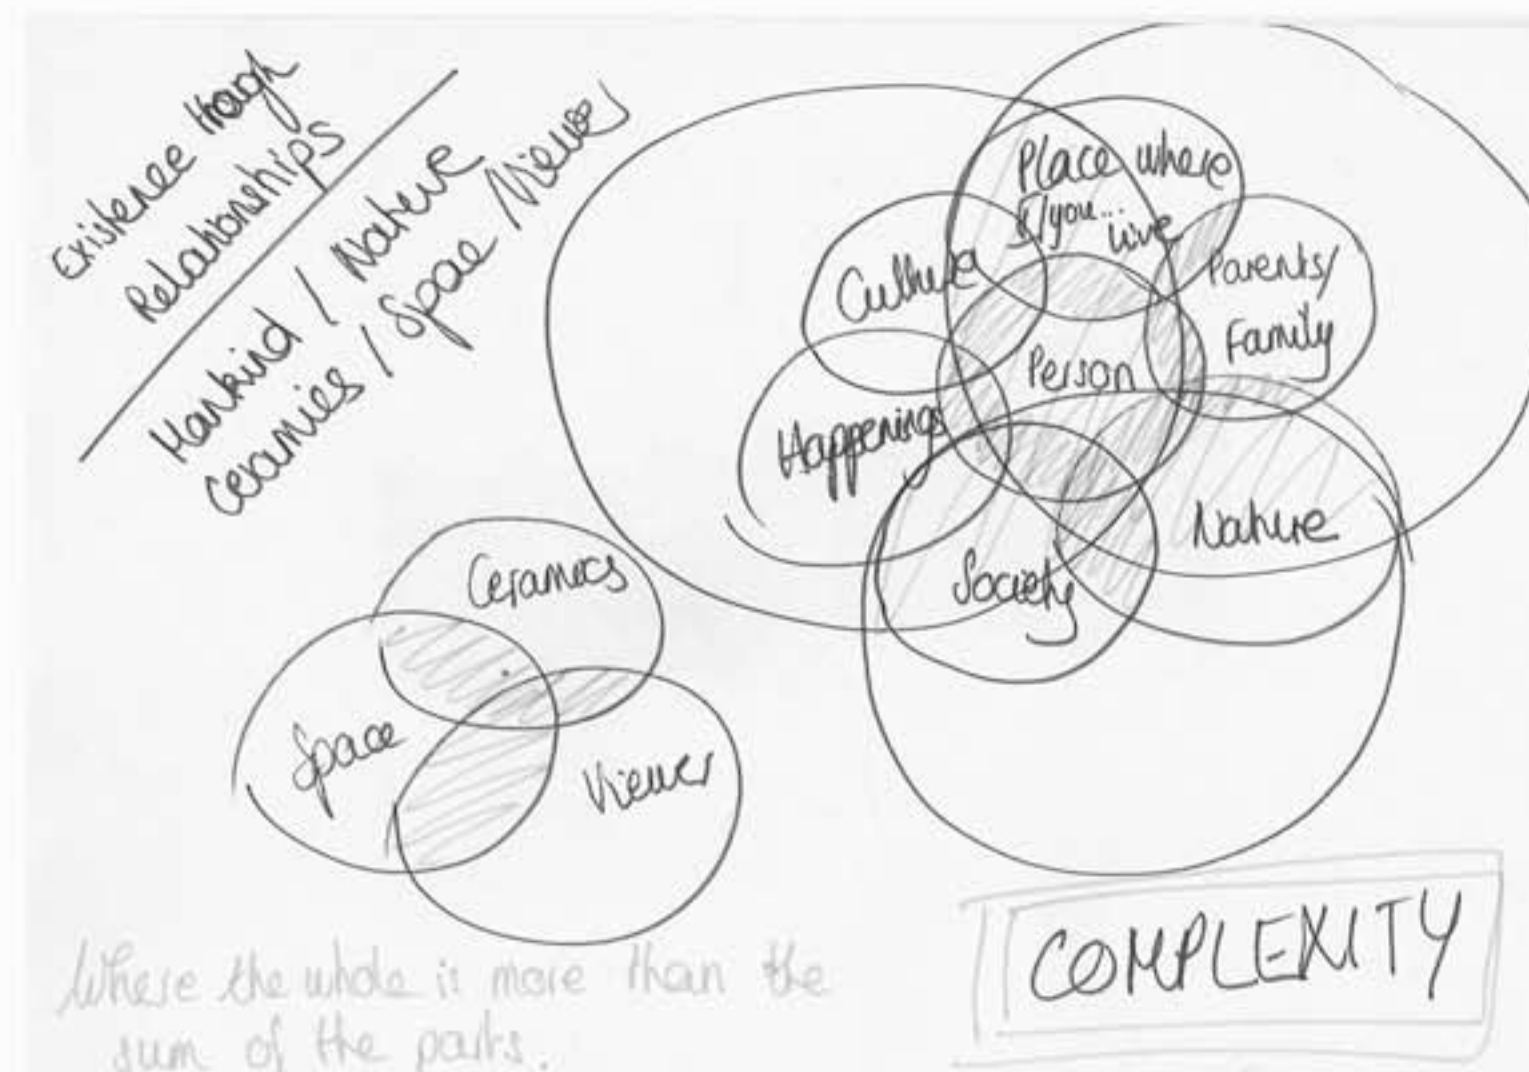 Existence through
Relationships
Mankind / Nature
Ceramics / Space / Viewer
Place where
I/you...
live
Culture
Parents/
Family
Person
Happenings
Nature
Society
Ceramics
Space
Viewer
Where the whole is more than the
sum of the parts.
COMPLEXITY